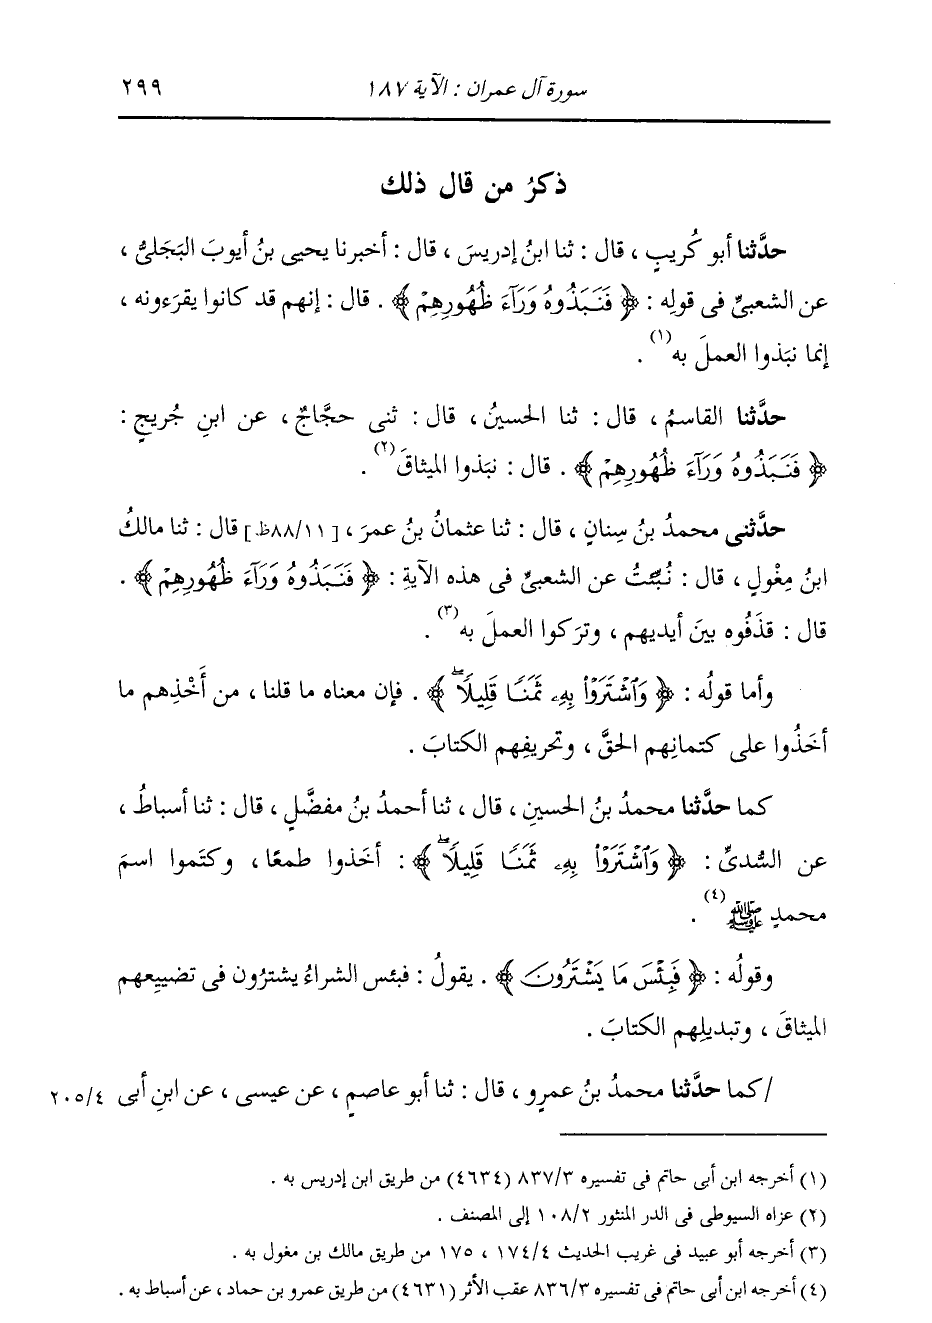 سورة آل عمران : الآية ١٨٧ ٢٩٩
ذكرُ من قال ذلك
حدَّثنا أبو كُريبٍ ، قال : ثنا ابنُ إدريسَ ، قال : أخبرنا يحيى بنُ أيوبَ البَجَلىُّ ،
عن الشعبىِّ فى قولِه : ﴿ فَنَبَذُوهُ وَرَآءَ ظُهُورِهِمْ ﴾ . قال : إنهم قد كانوا يقرَءونه ،
إنما نبَذوا العملَ به(١) .
حدَّثنا القاسمُ ، قال : ثنا الحسينُ ، قال : ثنى حجَّاجٌ ، عن ابنِ جُريجٍ :
﴿ فَنَبَذُوهُ وَرَآءَ ظُهُورِهِمْ ﴾ . قال : نبَذوا الميثاقَ(٢) .
حدَّثنى محمدُ بنُ سِنانٍ ، قال : ثنا عثمانُ بنُ عمرَ ، [٨٨/١١ظ] قال : ثنا مالكُ
ابنُ مِغْولٍ ، قال : نُبِّئتُ عن الشعبىِّ فى هذه الآيةِ : ﴿ فَنَبَذُوهُ وَرَآءَ ظُهُورِهِمْ ﴾ .
قال : قذَفُوه بينَ أيديهم ، وترَكوا العملَ به(٣) .
وأما قولُه : ﴿ وَٱشْتَرَوْا۟ بِهِۦ ثَمَنًا قَلِيلًاۖ ﴾ . فإن معناه ما قلنا ، من أَخْذِهم ما
أخَذُوا على كتمانِهم الحقَّ ، وتحريفِهم الكتابَ .
كما حدَّثنا محمدُ بنُ الحسينِ ، قال ، ثنا أحمدُ بنُ مفضَّلٍ ، قال : ثنا أسباطُ ،
عن السُّدىِّ : ﴿ وَٱشْتَرَوْا۟ بِهِۦ ثَمَنًا قَلِيلًاۖ ﴾ : أخَذوا طمعًا ، وكتَموا اسمَ
محمدٍ ﷺ(٤) .
وقولُه : ﴿ فَبِئْسَ مَا يَشْتَرُونَ ﴾ . يقولُ : فبئس الشراءُ يشترُون فى تضييعِهم
الميثاقَ ، وتبديلِهم الكتابَ .
/كما حدَّثنا محمدُ بنُ عمرٍو ، قال : ثنا أبو عاصمٍ ، عن عيسى ، عن ابنِ أبى ٢٠٥/٤
(١) أخرجه ابن أبى حاتم فى تفسيره ٨٣٧/٣ (٤٦٣٤) من طريق ابن إدريس به .
(٢) عزاه السيوطى فى الدر المنثور ١٠٨/٢ إلى المصنف .
(٣) أخرجه أبو عبيد فى غريب الحديث ١٧٤/٤ ، ١٧٥ من طريق مالك بن مغول به .
(٤) أخرجه ابن أبى حاتم فى تفسيره ٨٣٦/٣ عقب الأثر (٤٦٣١) من طريق عمرو بن حماد ، عن أسباط به .